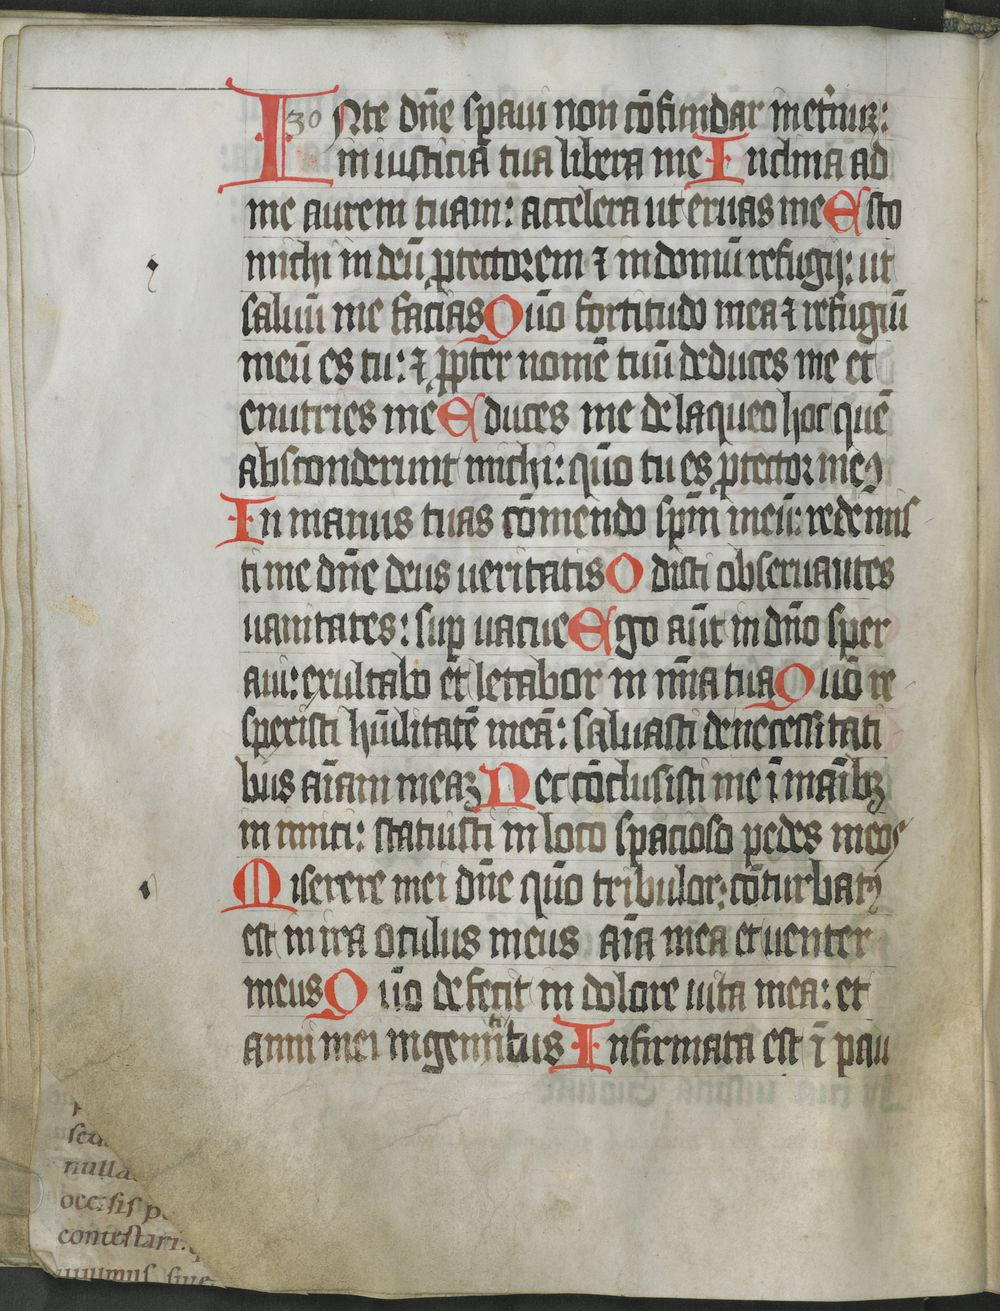 30
INte dñe sp̱aui non cõfundar inet̃nuꝫ:
in iusticia tua libera me Inclina ad
me aurem tuam: accelera ut eruas me Esto
michi in deũ ꝓtectorem ⁊ in domũ refugij: ut
saluũ me facias Qũo fortitudo mea ⁊ refugiũ
meũ es tu: ⁊ ꝓpter nomẽ tuũ deduces me et
enutries me Educes me de laqueo hoc quẽ
absconderunt michi: qũo tu es ꝓtector meꝰ
In manus tuas cõmendo sp̃m meũ: redemis
ti me dñe deus ueritatis Odisti obseruantes
uanitates: suꝑ uacue Ego aũt in dño sper
aui: exultabo et letabor in mĩa tua Qũo re
spexisti hũilitatẽ meã: saluasti de necessitati
bus aĩam meaꝫ Nec cõclusisti me ĩ maĩbꝫ
inimici: statuisti in loco spacioso pedes meos
Miserere mei dñe qũo tribulor: cõturbatꝰ
est in ira oculus meus aĩa mea et uenter
meus Qũo defecit in dolore uita mea: et
anni mei in gemitibus Infirmata est ĩ pau
nulla
occisis p
contestari. q
uiuimus siue